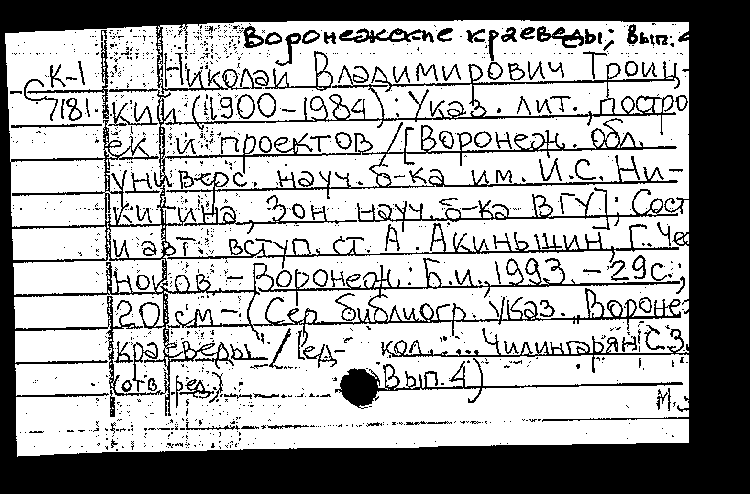 Воронежские краеведы; Вып. 4
К-1
7181
Николай Владимирович Троиц-
кий (1900-1984): Указ. лит., постро
ек и проектов / [Воронеж. обл.
универс. науч. б-ка им. И.С. Ни-
китина, Зон. науч. б-ка ВГУ]; Сост
и авт. вступ. ст. А. Акиньшин, Г. Чес
ноков. - Воронеж: Б.и., 1993. - 29 с.;
20 см - (Сер. библиогр. указ. „Воронеж
краеведы" / Ред-
кол.: ... Чилингарян С.З.
(отв. ред.)
Вып. 4)